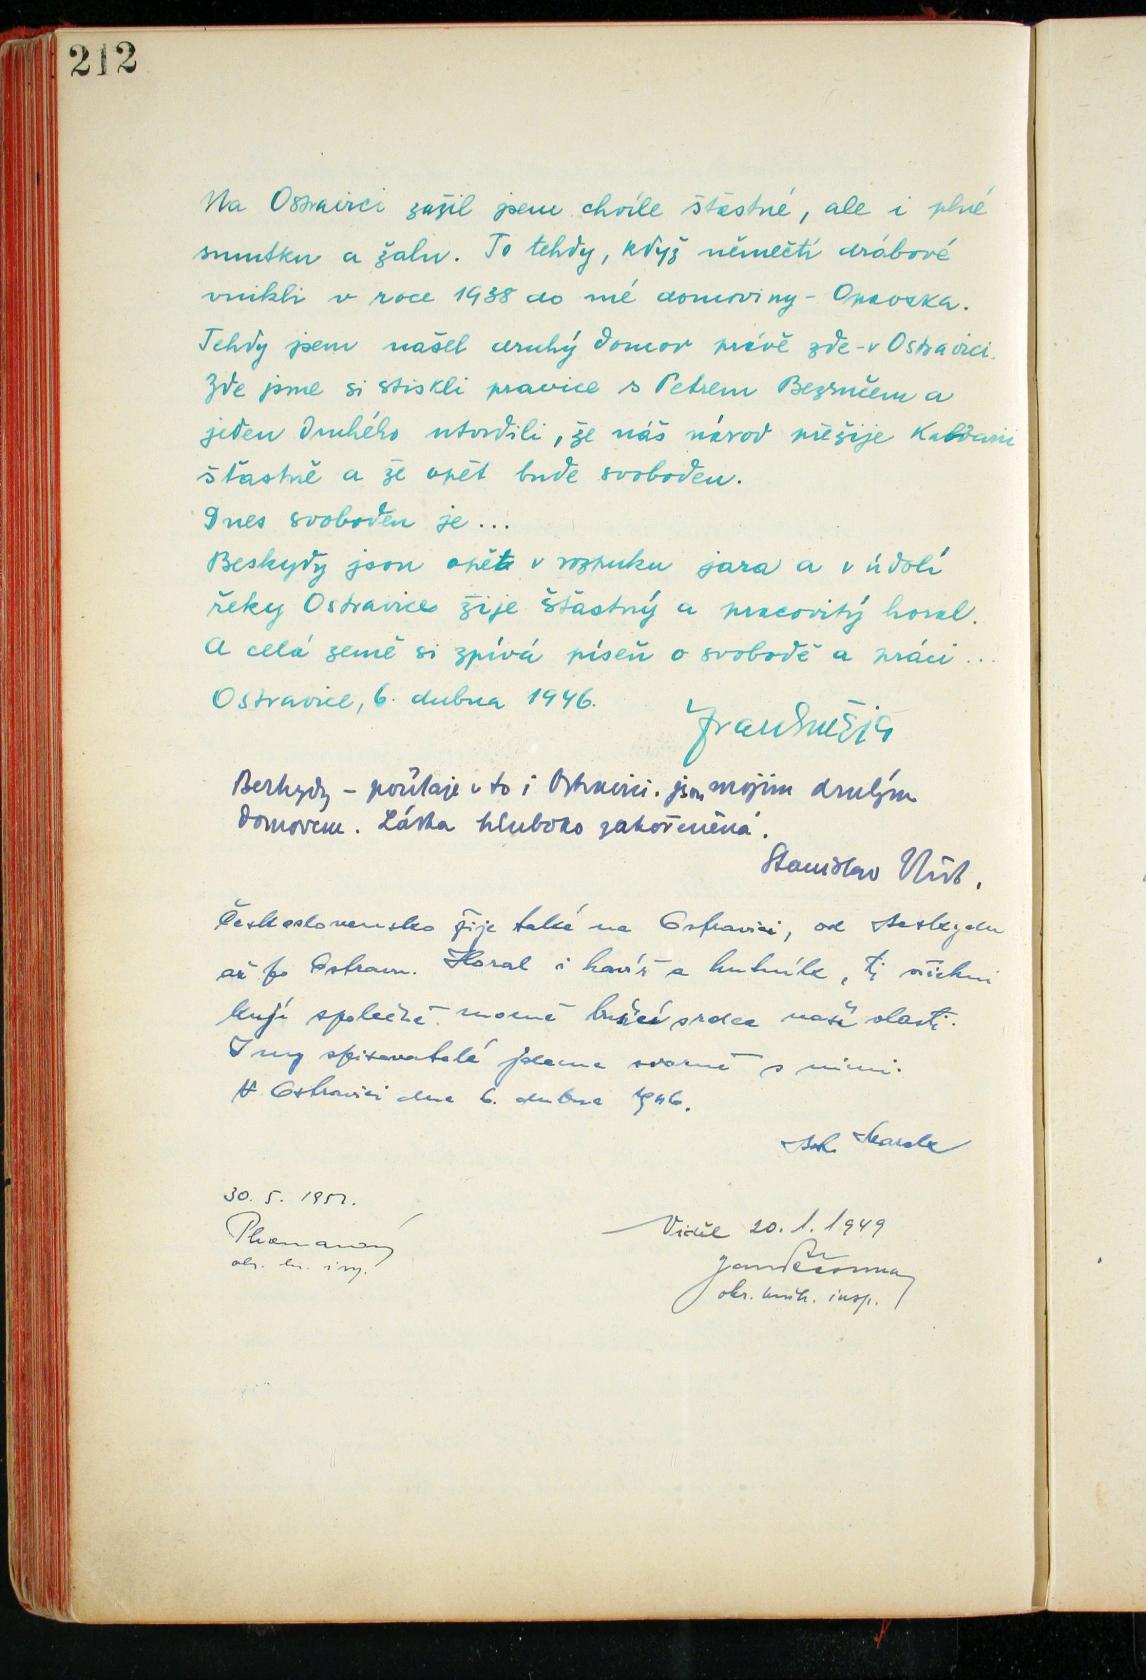 212
Na Ostravici zažil jsem chvíle šťastné, ale i plné
smutku a žalu. To tehdy, když němečtí drábové
vnikli v roce 1938 do mé domoviny - Opavska.
Tehdy jsem našel druhý domov právě zde - v Ostravici.
Zde jsme si stiskli pravice s Petrem Bezručem a
jeden druhého utvrdili, že náš národ přežije
šťastně a že opět bude svoboden.
Dnes svoboden je ...
Beskydy jsou opět v rozpuku jara a v údolí
řeky Ostravice žije šťastný a pracovitý horal.
A celá země si zpívá píseň o svobodě a práci ...
Ostravice, 6. dubna 1946.
Beskydy - počítaje v to i Ostravici. jsou mojim druhým
domovem. Láska hluboko zakořeněná.
Stanislav
Československo žije také na Ostravici, od Beskydu
až po Ostravu. Horal i havíř a hutník, ti všichni
kují společně mocně bušící srdce naší vlasti.
I my spisovatelé jdeme svorně s nimi.
V Ostravici dne 6. dubna 1946.
30. 5. 1951.
Viděl 20. 1. 1949
okr. knih. insp.